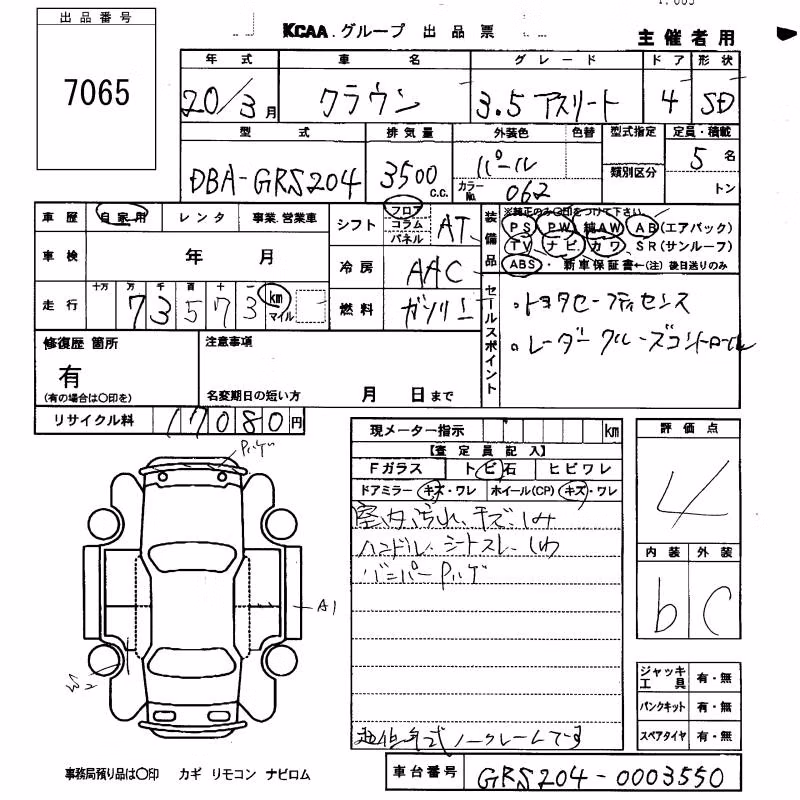 出品番号
7065
KCAA.グループ 出品票
主催者用
年式 車名 グレード ドア 形状
20/3月 クラウン 3.5 アスリート 4 SD
型式 排気量 外装色 色替 型式指定 定員・積載
DBA-GRS204 3500 c.c. パール 類別区分 5名
カラーNo. 062 トン
車歴 自家用 レンタ 事業.営業車
シフト フロア コラム パネル AT
装備品
※純正のみ○印をつけて下さい
PS PW 純AW AB(エアバック)
TV ナビ カワ SR(サンルーフ)
ABS・新車保証書←(注)後日送りのみ
車検 年 月
冷房 AAC
走行 十万 万 千 百 十 一
73573 km マイル
燃料 ガソリン
セールスポイント
・トヨタセーフティセンス
・レーダークルーズコントロール
修復歴 箇所
有
(有の場合は○印を)
注意事項
名変期日の短い方 月 日まで
リサイクル料 17080円
現メーター指示 km
【査定員記入】
Fガラス トビ石 ヒビワレ
ドアミラー キズ・ワレ ホイール(CP) キズ・ワレ
室内汚れ、キズ、しみ
ハンドル、シートスレ、しわ
バンパーPハゲ
ノークレームです
評価点
4
内装 外装
b C
Pハゲ
A1
W2
ジャッキ工具 有・無
パンクキット 有・無
スペアタイヤ 有・無
事務局預り品は○印 カギ リモコン ナビロム
車台番号 GRS204-0003550